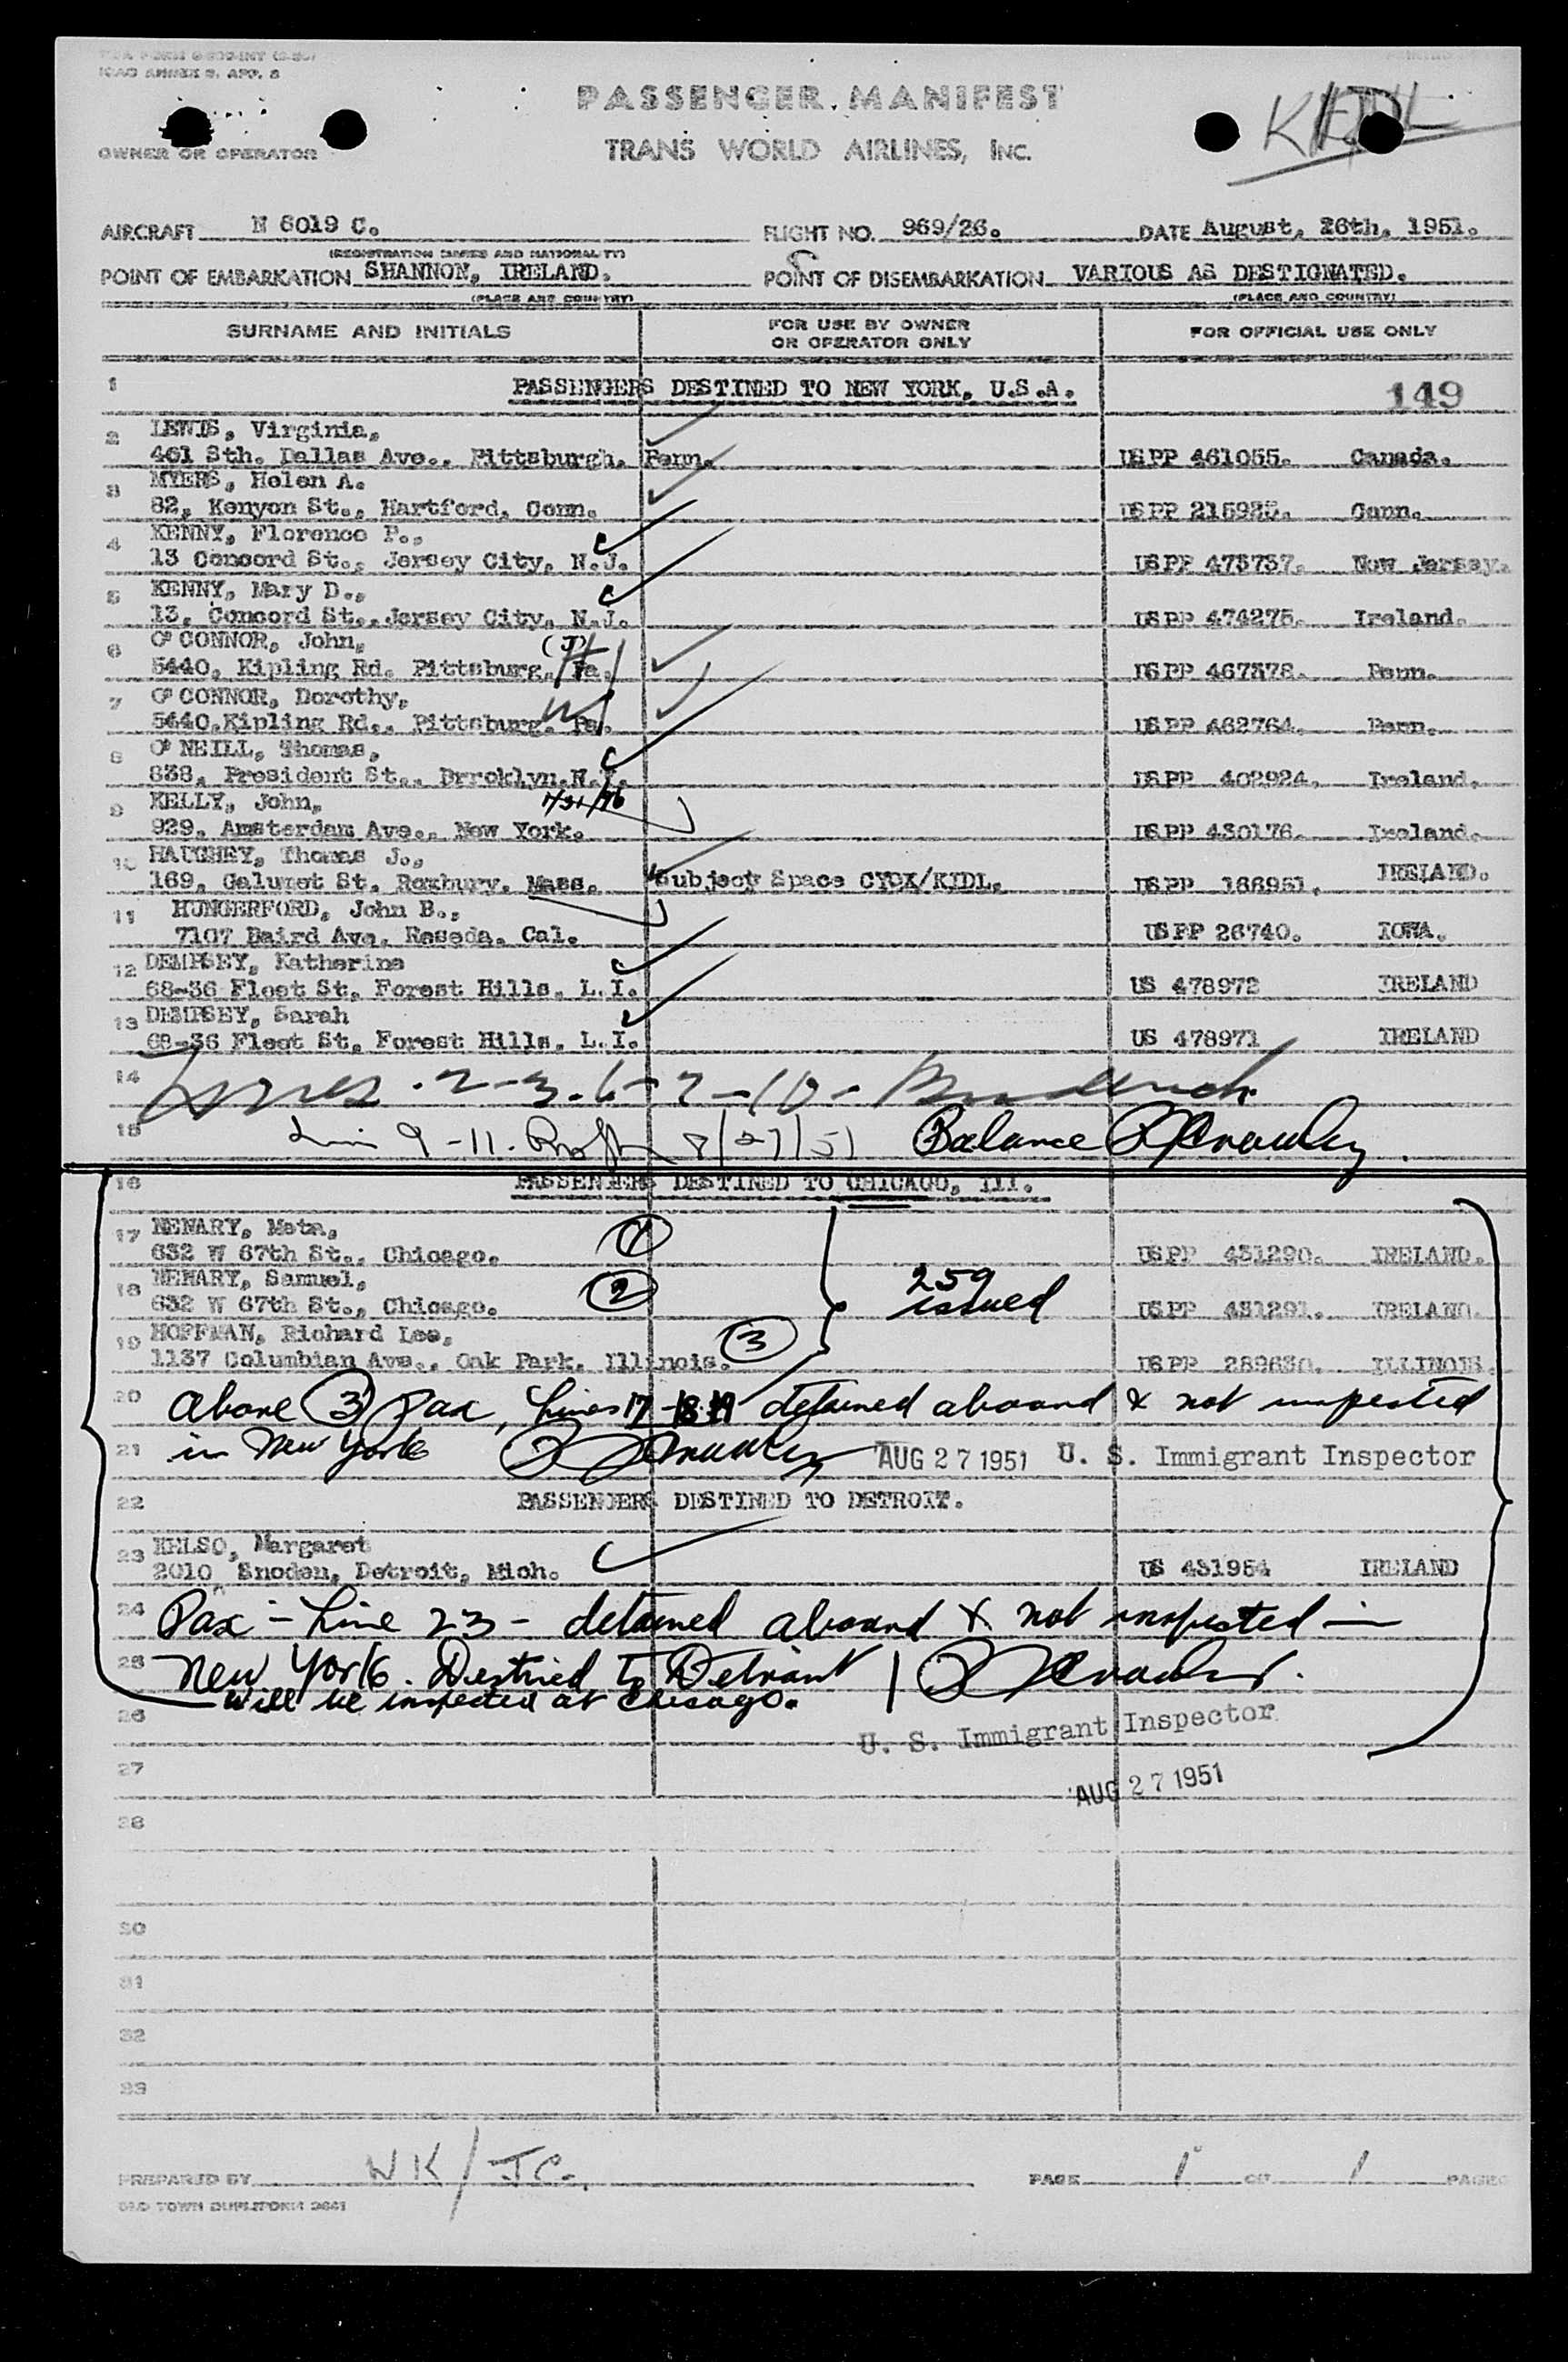 ICAO ANNEX 9, APP. 5
PASSENGER MANIFEST
TRANS WORLD AIRLINES, INC.
OWNER OR OPERATOR
AIRCRAFT N 6019 C. FLIGHT NO. 969/26. DATE August, 26th, 1951.
POINT OF EMBARKATION SHANNON, IRELAND. POINT OF DISEMBARKATION VARIOUS AS DESTIGNATED.
(PLACE AND COUNTRY) (PLACE AND COUNTRY)
SURNAME AND INITIALS FOR USE BY OWNER OR OPERATOR ONLY FOR OFFICIAL USE ONLY
1 PASSENGERS DESTINED TO NEW YORK, U.S.A. 149
2 LEWIS, Virginia,
461 Sth. Dallas Ave., Pittsburgh, Penn. US PP 461055. Canada.
3 MYERS, Helen A.
82, Kenyon St., Hartford, Conn. US PP 215925. Conn.
4 KENNY, Florence F.,
13 Concord St., Jersey City, N.J. US PP 473737. New Jersey.
5 KENNY, Mary D.,
13, Concord St., Jersey City, N.J. US PP 474275. Ireland.
6 O'CONNOR, John, (J)
5440, Kipling Rd. Pittsburg, Pa. US PP 467378. Penn.
7 O'CONNOR, Dorothy,
5440, Kipling Rd., Pittsburg. Pa. US PP 462764. Penn.
8 O'NEILL, Thomas,
838, President St., Brroklyn, N.Y. US PP 402924. Ireland.
9 KELLY, John,
929, Amsterdam Ave., New York. US PP 430176. Ireland.
10 HAUGHEY, Thomas J.,
169, Calumet St. Roxbury, Mass. Subject Space CYQX/KIDL. US PP 166951. IRELAND.
11 HUNGERFORD, John B.,
7107 Baird Ave. Reseda. Cal. US PP 26740. IOWA.
12 DEMPSEY, Katherine
68-36 Fleet St. Forest Hills. L.I. US 478972 IRELAND
13 DEMPSEY, Sarah
68-36 Fleet St. Forest Hills, L.I. US 478971 IRELAND
14 Lines 2-3-6-7-10-
15 9-11. 8/27/51 Balance
16 PASSENGERS DESTINED TO CHICAGO, Ill.
17 NENARY, Meta, 1
632 W 67th St., Chicago. US PP 431290. IRELAND.
18 NENARY, Samuel, 2 259
632 W 67th St., Chicago. issued US PP 431291. IRELAND.
19 HOFFMAN, Richard Lee, 3
1137 Columbian Ave., Oak Park, Illinois. US PP 289630. ILLINOIS.
20 Above 3 Pax, Lines 17-18-19 detained aboard & not inspected
21 in New York AUG 27 1951 U. S. Immigrant Inspector
22 PASSENGERS DESTINED TO DETROIT.
23 KELSO, Margaret
2010 Snoden, Detroit, Mich. US 431954 IRELAND
24 Pax - Line 23 - detained aboard & not inspected in
25 New York. Destined to Detroit
will be inspected at Chicago.
26 U. S. Immigrant Inspector
27 AUG 27 1951
28
30
31
32
33
PREPARED BY WK/JC. PAGE 1 OF 1 PAGES
OLD TOWN DUPLIFORM 2641